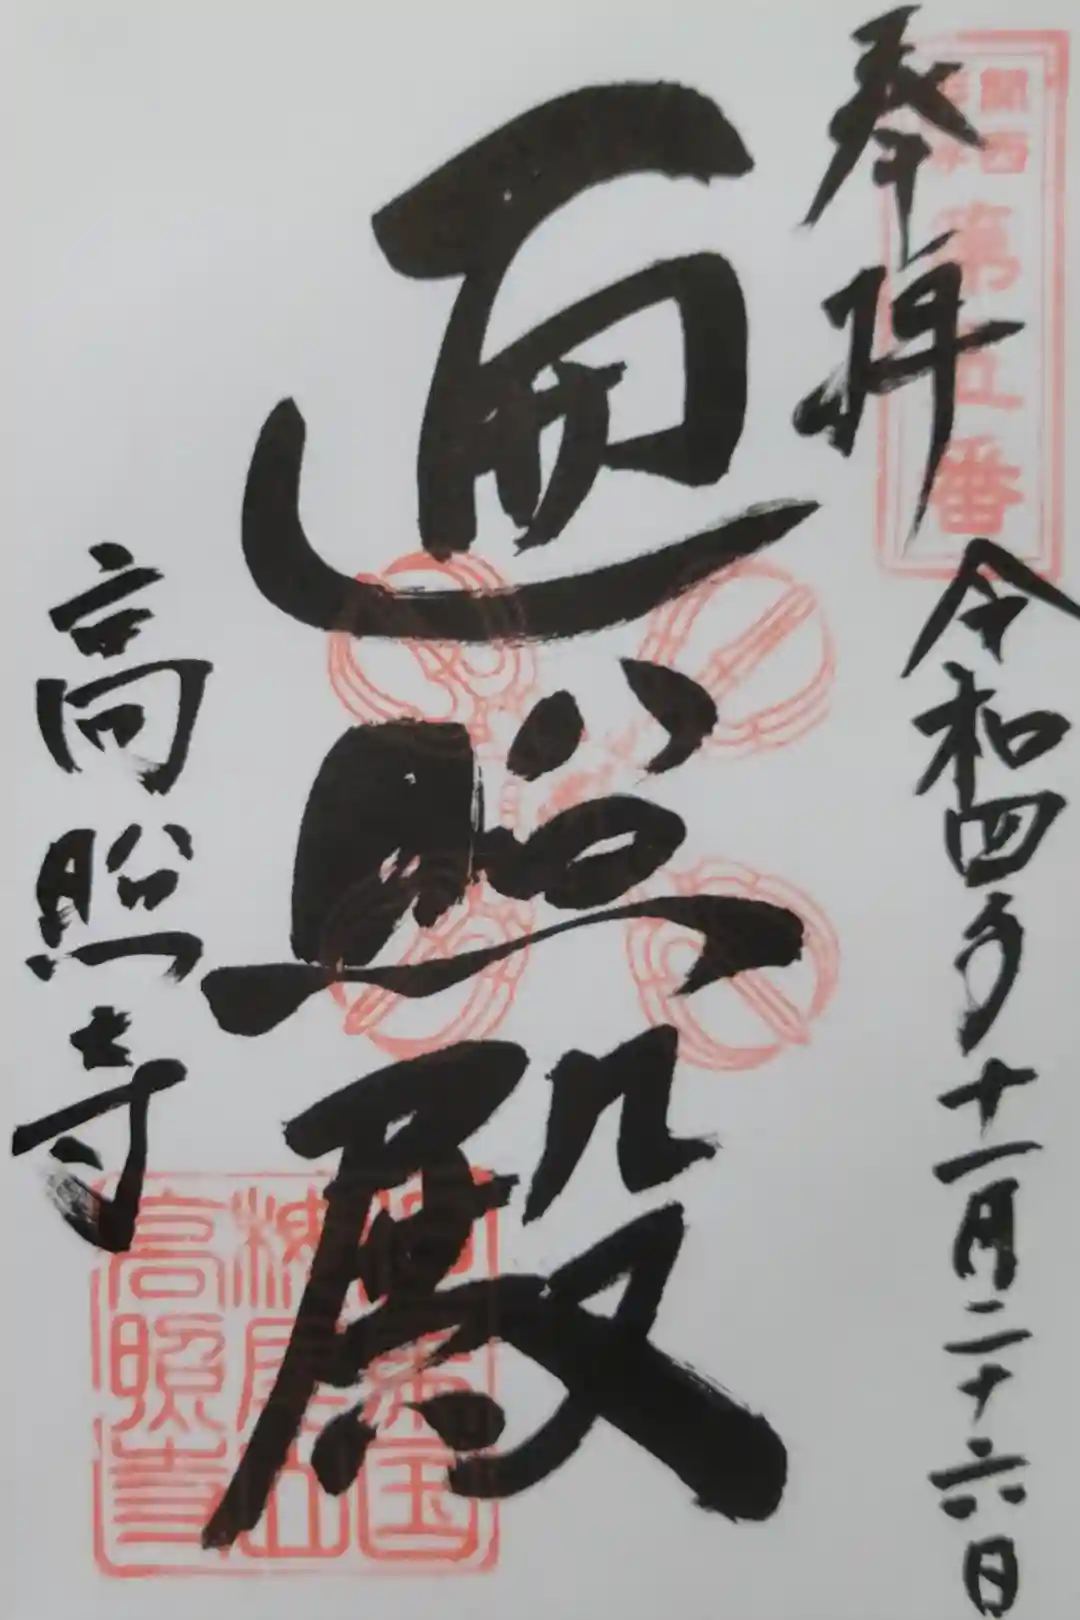 奉拝
関西
第五番
令和四年十一月二十六日
遍照殿
高照寺
高照寺